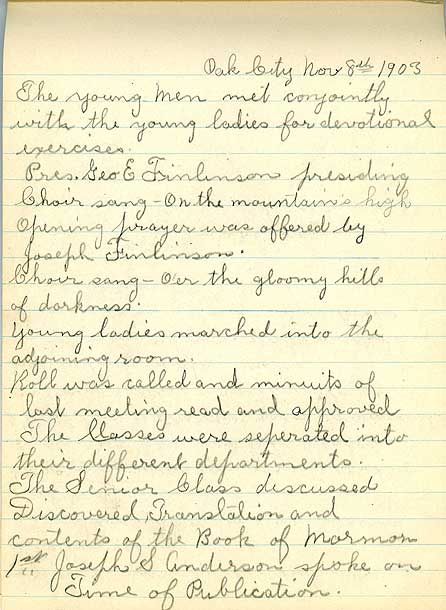 Oak City Nov 8th 1903
The young men met conjointly
with the young ladies for devotional
exercises.
Pres. Geo E Finlinson presiding
Choir sang - On the mountain's high
Opening prayer was offered by
Joseph Finlinson.
Choir sang - O'er the gloomy hills
of darkness.
Young ladies marched into the
adjoining room.
Roll was called and minuits of
last meeting read and approved
The Classes were seperated into
their different departments.
The Senior Class discussed
Discovered, Translation and
contents of the Book of Mormon
1st Joseph S Anderson spoke on
Time of Publication.